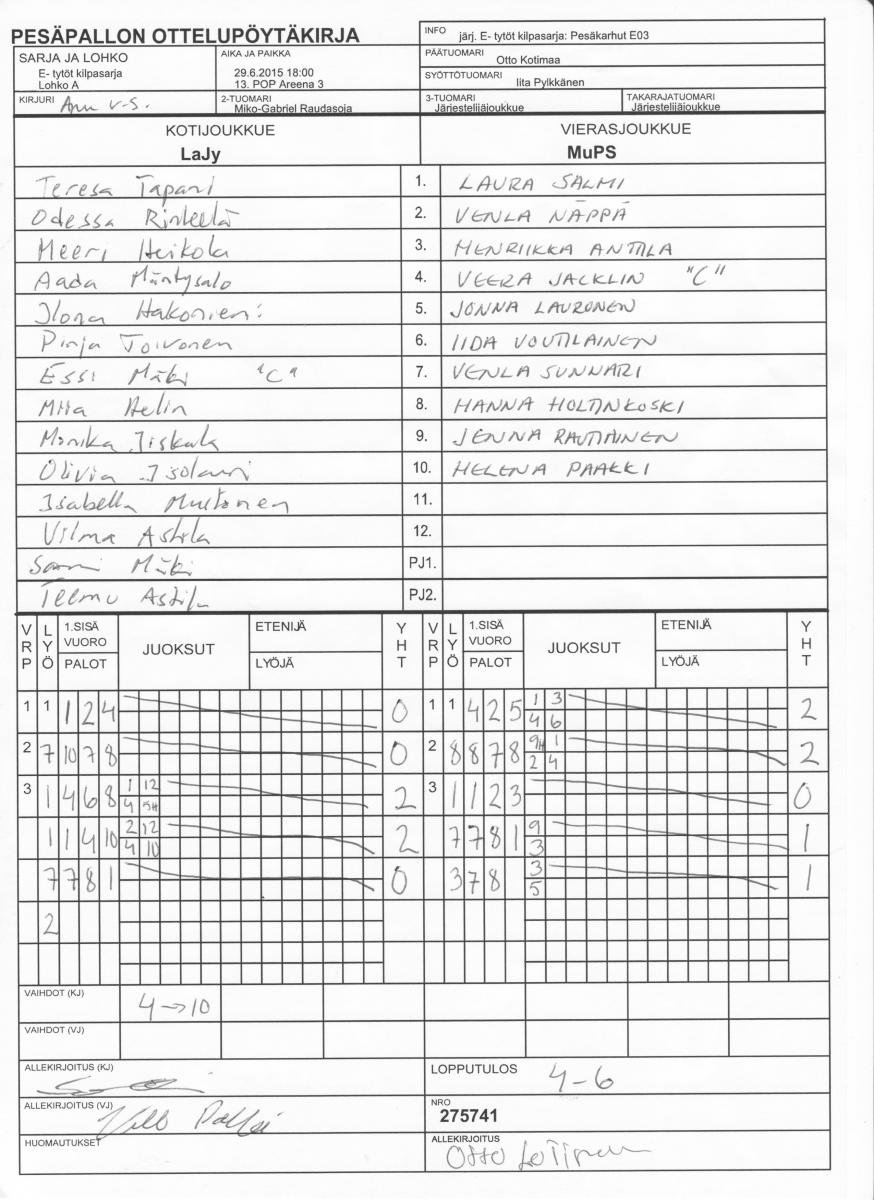 PESÄPALLON OTTELUPÖYTÄKIRJA
INFO järj. E- tytöt kilpasarja: Pesäkarhut E03
SARJA JA LOHKO
E- tytöt kilpasarja
Lohko A
AIKA JA PAIKKA
29.6.2015 18:00
13. POP Areena 3
PÄÄTUOMARI
Otto Kotimaa
SYÖTTÖTUOMARI
Iita Pylkkänen
KIRJURI Anu V-S.
2-TUOMARI
Miko-Gabriel Raudasoja
3-TUOMARI
Järjestelijäjoukkue
TAKARAJATUOMARI
Järjestelijäjoukkue
KOTIJOUKKUE
LaJy
VIERASJOUKKUE
MuPS
Teresa Tapani 1. LAURA SALMI
Odessa Rintelä 2. VENLA NÄPPÄ
Meeri Heikola 3. HENRIIKKA ANTTILA
Aada Mäntysalo 4. VEERA JACKLIN "C"
Ilona Hakoniemi 5. JONNA LAURONEN
Pinja Toivonen 6. IIDA VOUTILAINEN
Essi Mäki "C" 7. VENLA SUNNARI
Miia Helin 8. HANNA HOLTINKOSKI
Monika Jiskala 9. JENNA RAUTIAINEN
Olivia Isolauri 10. HELENA PAAKKI
Isabella Mustonen 11.
Vilma Astila 12.
Sami Mäki PJ1.
Teemu Astila PJ2.
VRP LYÖ 1.SISÄ VUORO PALOT JUOKSUT ETENIJÄ LYÖJÄ YHT VRP LYÖ 1.SISÄ VUORO PALOT JUOKSUT ETENIJÄ LYÖJÄ YHT
1 1 1 2 4 0 1 1 4 2 5 1 3 2
4 6
2 7 10 7 8 0 2 8 8 7 8 9H 1 2
2 4
3 1 4 6 8 1 12 2 3 1 1 2 3 0
4 5H
1 1 4 10 2 12 2 7 7 8 1 9 1
4 10 3
7 7 8 1 0 3 7 8 3 1
5
2
VAIHDOT (KJ) 4→10
VAIHDOT (VJ)
ALLEKIRJOITUS (KJ)
LOPPUTULOS 4-6
ALLEKIRJOITUS (VJ)
NRO
275741
HUOMAUTUKSET
ALLEKIRJOITUS
Otto